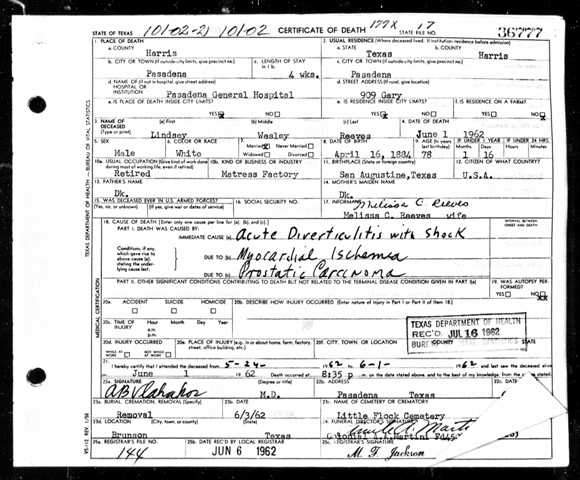 STATE OF TEXAS 10102-2) 10102 CERTIFICATE OF DEATH 177X STATE FILE NO. 17 36777
1. PLACE OF DEATH 2. USUAL RESIDENCE (Where deceased lived. If institution: residence before admission)
a. COUNTY Harris a. STATE Texas b. COUNTY Harris
b. CITY OR TOWN (If outside city limits, give precinct no.) c. LENGTH OF STAY in 1 b. c. CITY OR TOWN (If outside city limits, give precinct no.)
Pasadena 4 wks. Pasadena
d. NAME OF (If not in hospital, give street address) HOSPITAL OR INSTITUTION d. STREET ADDRESS (If rural, give location)
Pasadena General Hospital 909 Gary
e. IS PLACE OF DEATH INSIDE CITY LIMITS? e. IS RESIDENCE INSIDE CITY LIMITS? f. IS RESIDENCE ON A FARM?
YES NO YES NO YES NO
3. NAME OF DECEASED (Type or print) (a) First (b) Middle (c) Last 4. DATE OF DEATH
Lindsey Wesley Reeves June 1 1962
5. SEX 6. COLOR OR RACE 7. Married Never Married Widowed Divorced 8. DATE OF BIRTH 9. AGE (In years last birthday) IF UNDER 1 YEAR Months Days IF UNDER 24 HRS. Hours Min.
Male White April 16, 1884 78 1 16
10a. USUAL OCCUPATION (Give kind of work done during most of working life, even if retired) 10b. KIND OF BUSINESS OR INDUSTRY 11. BIRTHPLACE (State or foreign country) 12. CITIZEN OF WHAT COUNTRY?
Retired Matress Factory San Augustine, Texas U.S.A.
13. FATHER'S NAME 14. MOTHER'S MAIDEN NAME
Dk. Dk.
15. WAS DECEASED EVER IN U.S. ARMED FORCES? 16. SOCIAL SECURITY NO. 17. INFORMANT Melissa C. Reeves
(Yes, no, or unknown) (If yes, give war or dates of service) Melissa C. Reeves wife
18. CAUSE OF DEATH [Enter only one cause per line for (a), (b), and (c).] INTERVAL BETWEEN ONSET AND DEATH
PART I. DEATH WAS CAUSED BY:
IMMEDIATE CAUSE (a) Acute Diverticulitis with Shock
Conditions, if any, which gave rise to above cause (a), stating the underlying cause last.
DUE TO (b) Myocardial Ischemia
DUE TO (c) Prostatic Carcinoma
PART II. OTHER SIGNIFICANT CONDITIONS CONTRIBUTING TO DEATH BUT NOT RELATED TO THE TERMINAL DISEASE CONDITION GIVEN IN PART I(a) 19. WAS AUTOPSY PERFORMED?
YES NO
20a. ACCIDENT SUICIDE HOMICIDE 20b. DESCRIBE HOW INJURY OCCURRED (Enter nature of injury in Part I or Part II of item 18.)
20c. TIME OF INJURY Hour Month Day Year
a.m.
p.m.
TEXAS DEPARTMENT OF HEALTH
REC'D JUL 16 1962
BUREAU STATISTICS
20d. INJURY OCCURRED 20e. PLACE OF INJURY (e.g., in or about home, farm, factory, street, office building, etc.) 20f. CITY, TOWN, OR LOCATION COUNTY STATE
WHILE AT WORK NOT WHILE AT WORK
21. I hereby certify that I attended the deceased from 5-24- 1962 to 6-1- 1962 and last saw the deceased alive
June 1 1962 Death occurred at 8:35 p m. on the date stated above, and to the best of my knowledge, from the
22a. SIGNATURE (Degree or title) 22b. ADDRESS 22c. DATE
M.D. Pasadena Texas
23a. BURIAL, CREMATION, REMOVAL (Specify) 23b. DATE 23c. NAME OF CEMETERY OR CREMATORY
Removal 6/3/62 Little Flock Cemetery
23d. LOCATION (City, town, or county) (State) 24. FUNERAL DIRECTOR'S SIGNATURE
Brunson Texas Colonial
25a. REGISTRAR'S FILE NO. 25b. DATE REC'D BY LOCAL REGISTRAR 25c. REGISTRAR'S SIGNATURE
144 JUN 6 1962 M. F. Jackson
TEXAS DEPARTMENT OF HEALTH — BUREAU OF VITAL STATISTICS
MEDICAL CERTIFICATION
VS-112 REV. 1/58